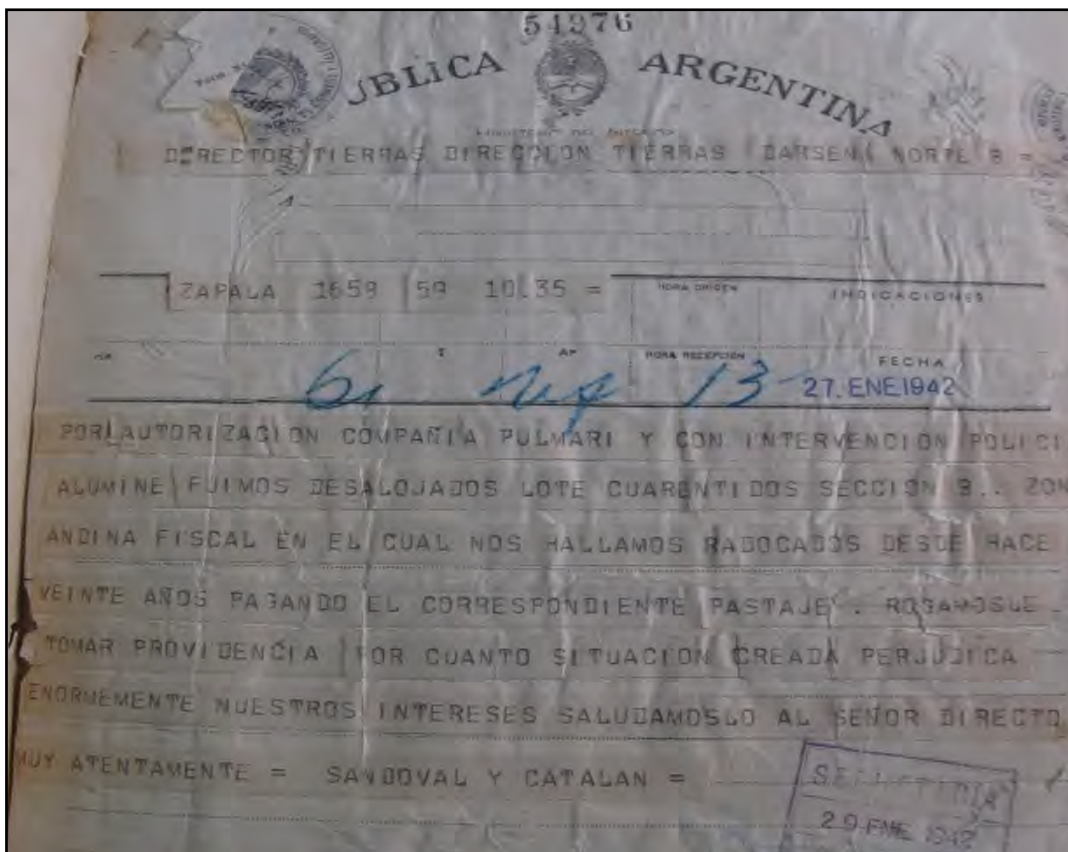 54976
ÚBLICA ARGENTINA
DIRECTOR TIERRAS DIRECCION TIERRAS DARSENA NORTE B =
ZAPALA 1659 59 10.35 =
HORA ORIGEN
INDICACIONES
HORA RECEPCIÓN
FECHA
13
27. ENE 1942
POR AUTORIZACION COMPAÑIA PULMARI Y CON INTERVENCION POLICI
ALUMINE FUIMOS DESALOJADOS LOTE CUARENTIDOS SECCION B.. ZON
ANDINA FISCAL EN EL CUAL NOS HALLAMOS RADOCADOS DESDE HACE
VEINTE AÑOS PAGANDO EL CORRESPONDIENTE PASTAJE . ROGAMOSLE .
TOMAR PROVIDENCIA POR CUANTO SITUACION CREADA PERJUDICA
ENORMEMENTE NUESTROS INTERESES SALUDAMOSLO AL SEÑOR DIRECTO
MUY ATENTAMENTE = SANDOVAL Y CATALAN =
29 ENE 1942